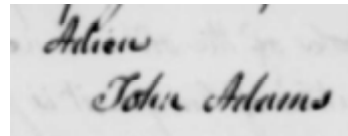 Adieu
John Adams